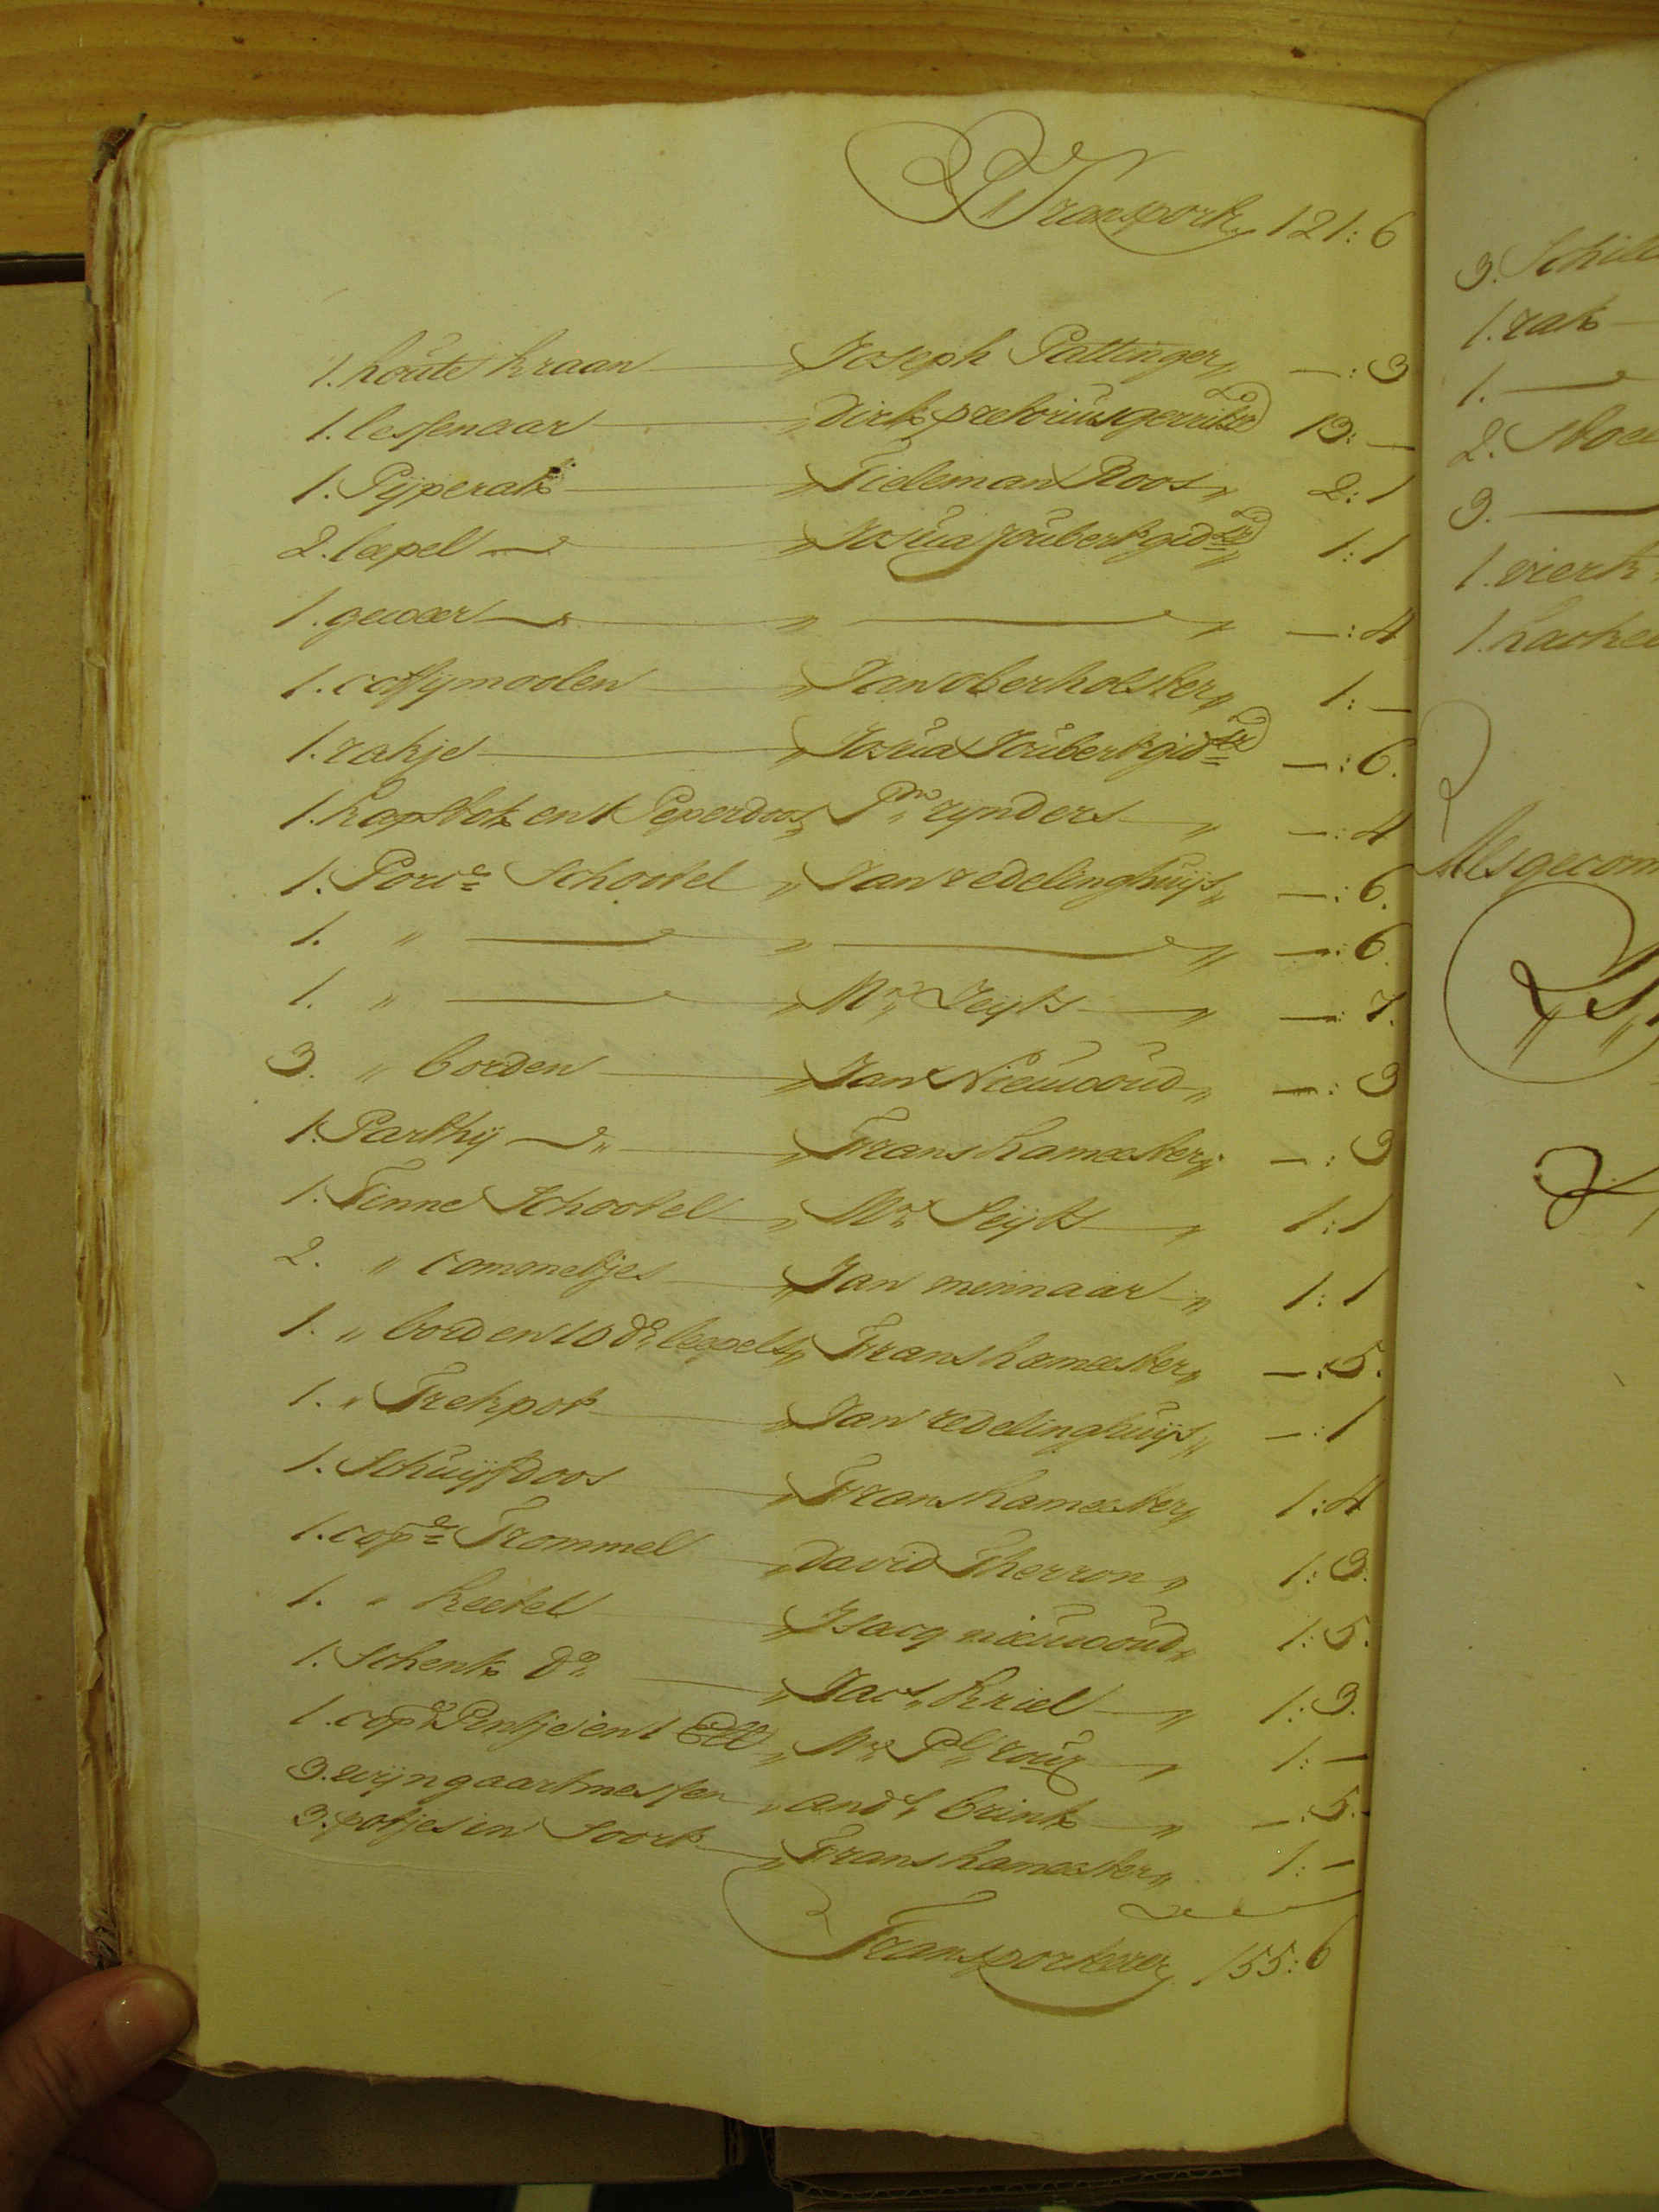 Transport 121: 6
1. houte kraan " Joseph Pattinger " —: 3
1. lessenaar " Dirk pretorius gerritsz 13: —
1. Pijperak " Tieleman Roos " 2: 1
2. lepel — " Josua Joubert gid:zn " 1: 1
1. gewoer — " — " —: 4
1. coffijmoolen " Jan oberholster " 1: —
1. rakje " Josua Joubert gid:zn —: 6.
1. kapstok en 1 Peperdoos " Pr. rynders " —: 4
1. Porce: Schootel " Jan redelinghuijs " —: 6.
1. " — " — " —: 6.
1. " — " Mr. Seyts — " —: 7.
3. " borden " Jan Nieuwoud " —: 3
1. Parthij — " " Frans hameester " —: 3
1. Tinne Schootel " Mr. Seyts " 1: 1
2. " commetjes " Jan minnaar " 1: 1
1. " bord en 10 do. lepels " Frans hameester " —: 5.
1. " Trekpot " Jan redelinghuijs " —: 1
1. Schuijfdoos " Frans hameester " 1: 4
1. cope: Trommel " david Therron " 1: 3.
1. " keetel " Isacq nieuwoud " 1: 5.
1. Schenk do. " Jacs. Kriel " 1: 3.
1. cope: Pintje en 1 Ell " Mr. Pl. roux " 1: —
3. wijngaartmessen " andr. brink " —: 5.
3. potjes in soort " Frans hameester " 1: —
Transporteere 155: 6
3. Schild
1. rak
1. —
2. stoel
3. —
1. vierk
Alsgecom